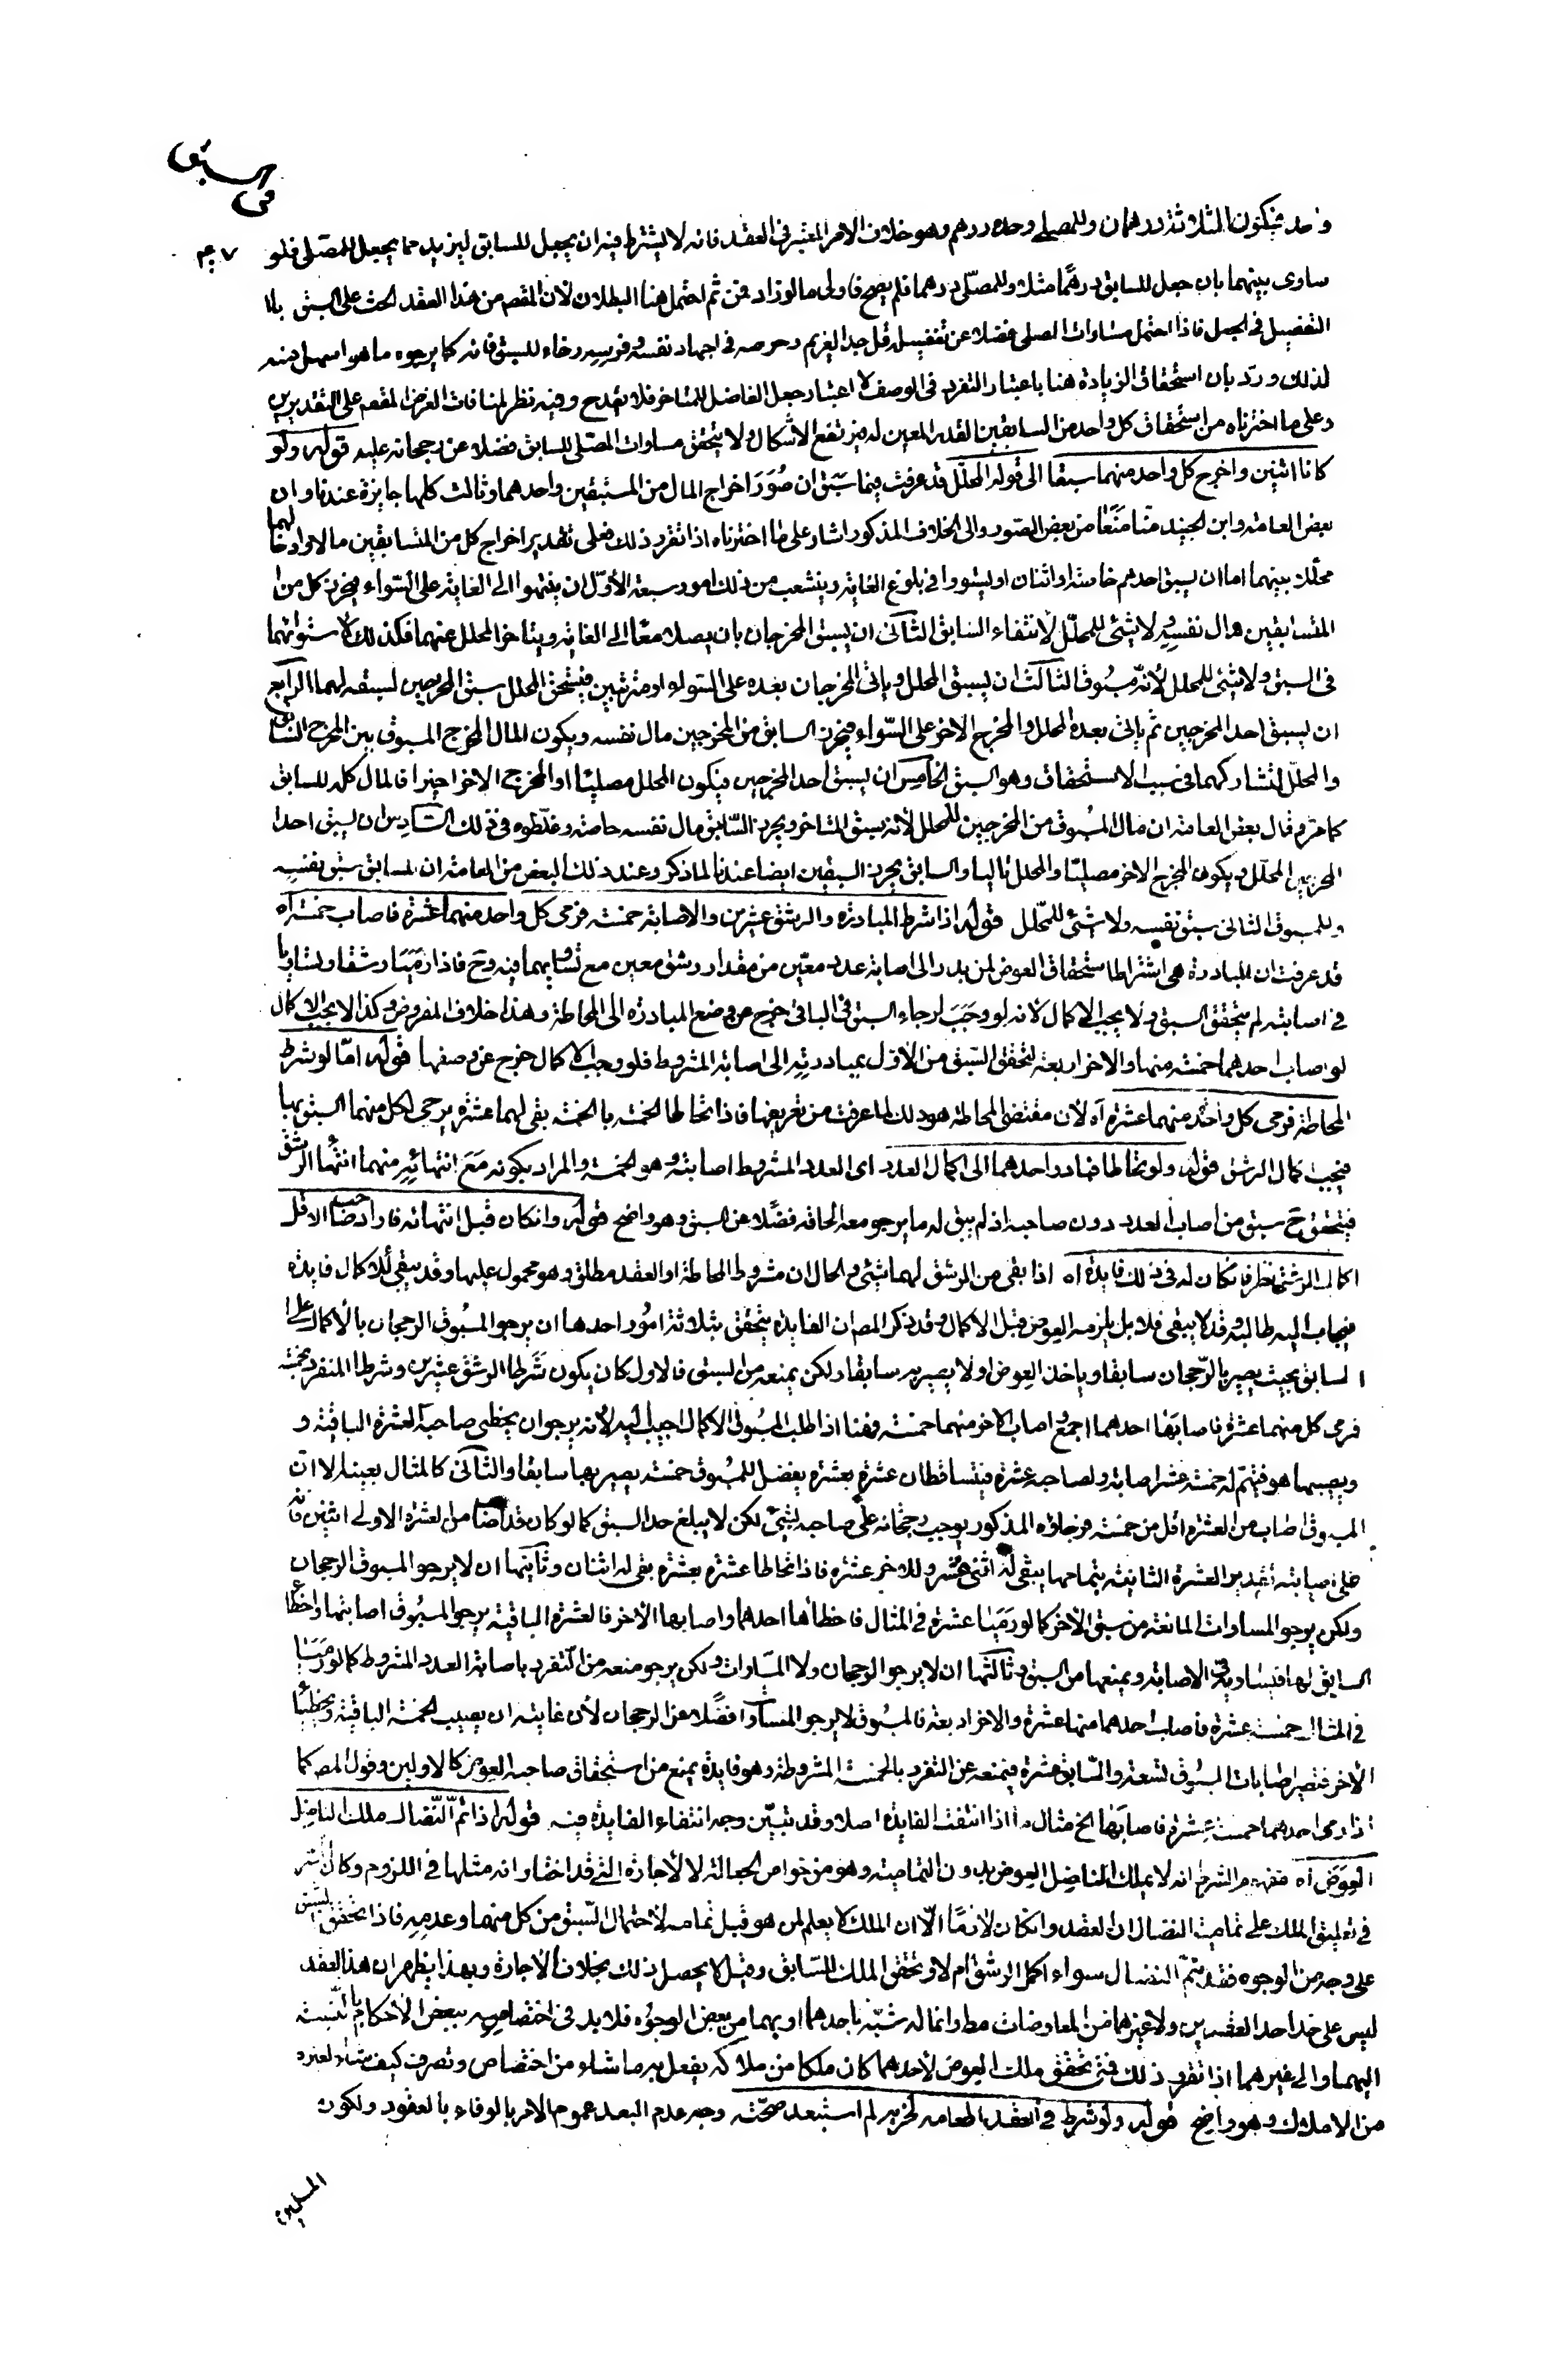 في السبق
٤٠٧
واحد فيكون للثلاثة درهمان وللمصلي وحده درهم وهو خلاف الامر المعتبر في العقد فانه لا يشترط فيه ان يجعل للسابق ليزيد عما يجعل للمصلي فلو
ساوى بينهما بان جعل للسابق درهمًا مثلا وللمصلّى درهما فلم يصح فاولى ما لو زاد ومن ثم احتمل هنا البطلان لان المقصم من هذا العقد الحث على السبق بالا
التفضيل في الجعل فاذا احتمل مساوات المصلى فضلا عن تفضيله قل جد الغريم وحرصه في اجهاد نفسه وفرسه رجاء للسبق فانه كما يرجوه ما هو اسهل منه
لذلك وردّ بان استحقاق الزيادة هنا باعتبار التفرد في الوصف لا اعتبار جعل الفاضل للمتاخر فلا يقدح وفيه نظر لمنافات الغرض المقصم على التقديرين
وعلى ما اخترناه من استحقاق كل واحد من السابقين القدر المعين له يرتفع الاشكال ولا يتحقق مساوات المصلى للسابق فضلا عن رجحانه عليه قوله ولو
كانا اثنين واخرج كل واحد منهما سبقا الى قوله المحلّل قد عرفت فيما سبق ان صُوَر اخراج المال من المستبقين واحدهما وثالث كلها جايزة عندنا وان
بعض العامة وابن الجنيد منا مَنَعَا من بعض الصور والى الخلاف المذكور اشار على ما اخترناه اذا تقرر ذلك فعلى تقدير اخراج كل من المتسابقين مالا وادخالهما
محللا بينهما اما ان يسبق احدهم خاصة او اثنان او يستووا في بلوغ الغاية وينشعب من ذلك امور سبعة الأوّل ان ينتهوا الى الغاية على السّواء فيحرز كل من ا
المتسابقين مال نفسه ولا شئ للمحلّل لانتفاء السابق الثاني ان يسبق المخرجان بان يصلا معًا الى الغاية ويتاخر المحلل عنهما فكذلك لاستوائهما
في السبق ولا شئ للمحلل لأنّه مسبُوق الثالث ان يسبق المحلل وياتى المخرجان بعده على السواء او مترتبين فيستحق المحلل سبق المخرجين لسبقه لهما الرابع
ان يسبق احد المخرجين ثم ياتى بعده المحلل والمخرج الاخر على السّواء فيحرز السابق من المخرجين مال نفسه ويكون المال المخرج المسبوق بين المخرج السابق
والمحلّل لتشاركهما في سبب الاستحقاق وهو السبق الخامس ان يسبق احد المخرجين فيكون المحلل مصليًا او المخرج الاخر اخيرا فالمال كله للسابق
كما مر وقال بعض العامة ان مال المسُبوق من المخرجين للمحلل لأنه يسبق المتاخر ويحرز السّابق مال نفسه خاصة وغلّطوه في ذلك السّادس ان يسبق احدا
المخرجين المحلّل ويكون المخرج الاخر مصليّا والمحلل تاليا والسابق يحرز السبقين ايضا عندنا لما ذكر وعند ذلك البعض من العامة ان للسابق سبق نفسه
وللمسبوق الثانى سبق نفسه ولا شئ للمحلل قوله اذا شرط المبادرة والرشق عشرين والاصابة خمسة فرمى كل واحد منهما عشرة فاصاب خمسة آه
قد عرفت ان المبادرة هى اشتراط استحقاق العوض لمن بدر الى اصابة عدد معيّن من مقدار رشق معين مع تساويهما فيه وح فاذا رميَا رشقا وتساويا
في اصابته لم يتحقق السبق ولا يجب الاكمال لانه لو وجَبَ لرجاء السبق في الباقى خرج عن وضع المبادرة الى المحاطة وهذا خلاف المفروض وكذا لا يجب الاكمال
لو اصاب احدهما خمسة منها والاخر اربعة لتحقق السّبق من الأوّل بمبادرته الى اصابة المشروط فلو وجب الاكمال خرج عن وصفها قوله امّا لو شرط
المحاطة فرمى كل واحد منهما عشرة آه لأن مقتضى المحاطة هو ذلك لما عرفت من تعريفها فاذا تحاطا الخمسة بالخمسة بقى لهما عشرة يرجى لكل منهما السبق بها
فيجب كمال الرشق قوله ولو تحاطا فبادر احدهما الى اكمال العدد اى العدد المشروط اصابته وهو الخمسة والمراد بكونه مَعَ انتهائه منهما انتهاء الرشق
فيتحقق ح سبق من اصاب العدد دون صاحبه اذ لم يبق له ما يرجو معه الحاقه فضلا عن السبق وهو واضح قوله وانكان قبل انتهائه فاراد صاحب الاقل
اكمال الرشق نظر فانكان له في ذلك فايدة اه اذا بقى من الرشق لهما شئ والحال ان مشروط المحاطة او العقد مطلق وهو محمول عليها وقد يبقى للاكمال فايدة
فيجاب اليه طالبه وقد لا يبقى فلا بل يلزمه العوض قبل الاكمال وقد ذكر المصم ان الفايدة يتحقق بثلاثة امُور احدها ان يرجو المسُبوق الرجحان بالأكمال على ا
السابق بحيث يصير بالرّجحان سابقا وياخذ العِوض او لا يصير به سابقا ولكن يمنعه من السبق فالاول كان يكون شَرطا الرشق عشرين وشرطا المنفرد بخمسة
فرمى كل منهما عشرة فاصابَها احدهما اجمع واصاب الاخر منهما خمسة فهنا اذا طلب المسُبوق الاكمال اجيب اليه لأنه يرجو ان يخطى صاحبه العشرة الباقية و
ويصيبها هو فيتم له خمسة عشر اصابة ولصاحبه عشرة فيتساقطان عشرة بعشرة يفضل للمسُبوق خمسة يصير بها سابقا والثانى كالمثال بعينه الا ان
المسبوق اصاب من العشرة اقل من خمسة ورجاؤه المذكور يوجب رجحانه على صاحبه بشئ لكن لا يبلغ حد السبق كما لو كان قد اصاب من العشرة الاولى اثنين فانه
على اصابته تقدير العشرة الثانية بتمامها يبقى له اثنى عشر وللاخر عشرة فاذا تحاطا عشرة بعشرة بقى له اثنان وثانيها ان لا يرجو المسبوق الرجحان
ولكن يرجو المساوات المانعة من سبق الأخر كما لو رميَا عشرة في المثال فاخطأها احدهما واصابها الأخر فالعشرة الباقية يرجو المسبُوق اصابتها واخطاء
السابق لها فيساويه في الاصابة ويمنعها من السبق وثالثها ان لا يرجو الرجحان ولا المسّاوات ولكن يرجو منعه من التّفرد باصابة العدد المشروط كما لو رَمَيَا
في المثال خمسة عشرة فاصاب احدهما منها عشرة والاخر اربعة فالمسُبوق لا يرجو المساوا فضلا عن الرجحان لأن غايته ان يصيب الخمسة الباقية ويخطيها
الأخر فتصير اصابات المسبُوق تسعة والسّابق عشرة فيمنعه عن التفرد بالخمسة المشروطة وهو فايدة يمنع من استحقاق صاحبه العِوض كالاولين وقول المصم كما
اذا رمى احدهما خمسة عشرة فاصابَها الخ مثال ما اذا انتفت الفايدة اصلا وقد تبيّن وجه انتفاء الفايدة فيه قوله اذا تمّ النّضال ملك الناضل
العِوَض آه مفهوم الشرط انه لا يملك المناضِل العِوض بدون التمامية وهو من خواص الجعالة لا لأجارة التى قد اختار انه مثلها في اللزوم وكان السّر
في تعليق الملك على تمامية النضال ان العقد وانكان لازمًا الّا ان الملك لا يعلم لمن هو قبل تمامه لاحتمال السّبق من كل منهما وعدمِه فاذا تحقق السبق
على وجه من الوجوه فقد يتمّ النضال سواء اكمل الرشق ام لا وتحقق الملك للسّابق وقبل لا يحصل ذلك بخلاف الاجارة وبهذا يظهر ان هذا العقد
ليس على حد احد العقدين ولا غيرهما من المعاوضات مط وانما له شبه باحدهما او بهما من بعض الوجوه فلا بد في اختصاصه ببعض الأحكام بالنّسبة
اليهما والى غيرهما اذا تقرر ذلك فمتى تحقق ملك العِوض لأحدهما كان ملكا من املاكه يفعل به ما شاء من اختصاص وتصرف كيف شاء لغيره
من الاملاك وهو واضح قوله ولو شرط في العقد اطعامه لحزبه لم استبعد صحّته وجه عدم البعد عموم الامر بالوفاء بالعقود ولكون
المسلمين